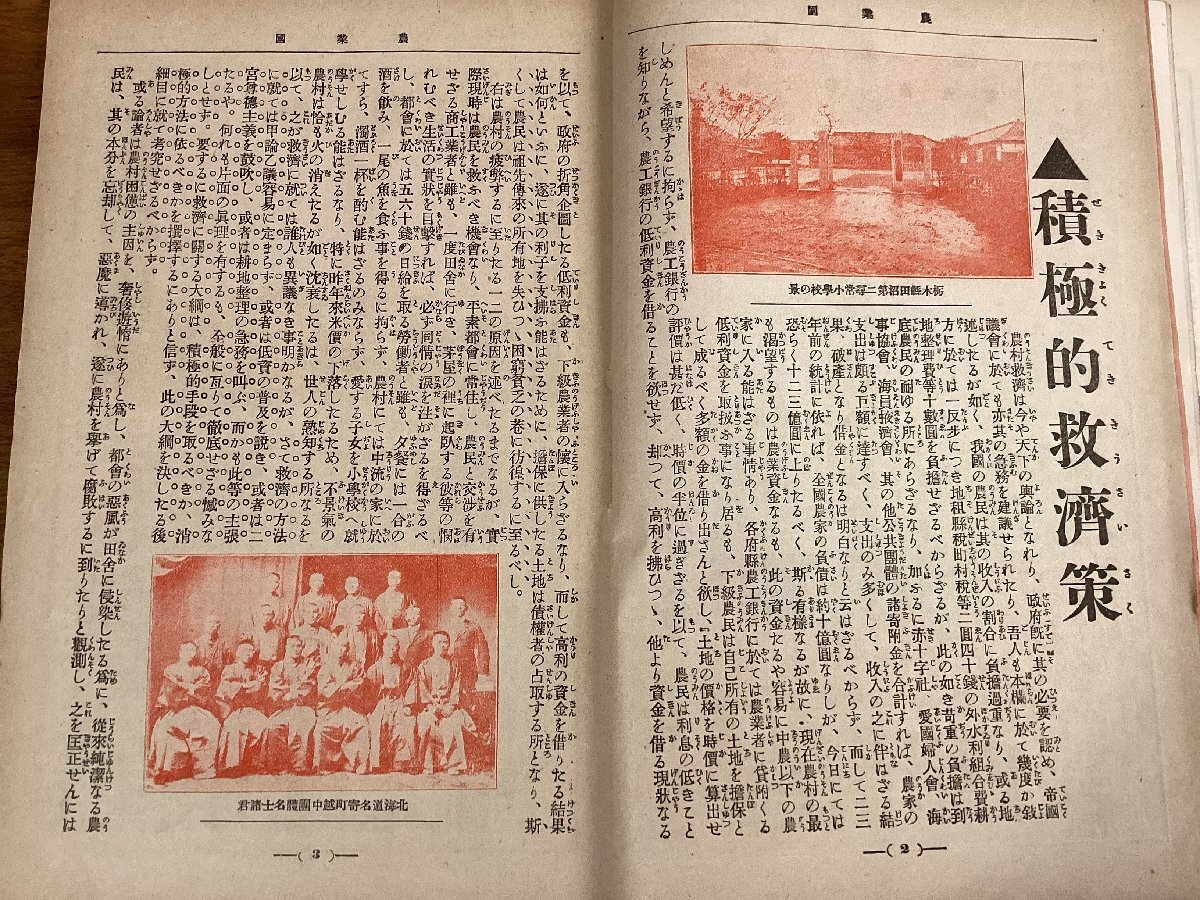 農業國
▲積極的救濟策
農村救濟は今や天下の輿論となれり、政府旣に其の必要を認め、帝國
議會に於ても亦其の急務を建議せられたり、吾人も本欄に於て幾度か敍
述したるが如く、我國の農民は其の收入の割合に負擔過重なり、或る地
方に於ては一反步につき地租縣稅町村稅等二圓四十錢の外水利組合費耕
地整理費等十數圓を負擔せざるべからざるが、此の如き苛重の負擔は到
底農民の耐ゆる所にあらざるなり、加ふるに赤十字社、愛國婦人會、海
事協會、海員掖濟會、其の他公共團體の諸寄附金を合計すれば、農家の
支出は頗る巨額に達すべく、支出のみ多くして、收入の之に伴はざる結
果、破產となり借金となるは明白なりと云はざるべからず、而して二三
年前の統計に依れば、全國農家の負債は約十億圓なりしが、今日にては
恐らく十二三億圓に上りたるべく、斯る有樣なるが故に、現在農村の最
も渴望するものは農業資金なるも、此の資金たるや容易に中農以下の農
家に入る能はざる事情あり、各府縣農工銀行に於ては農業者に貸附くる
低利資金を取扱ふ事になり居るも、下級農民は自己所有の土地を擔保と
して成るべく多額の金を借り出さんと欲し、土地の價格を時價に算出せ
しめんと希望するに拘らず、農工銀行の
評價は甚だ低く、時價の半位に過ぎざるを以て、農民は利息の低きこと
を知りながら、農工銀行の低利資金を借ることを欲せず、却つて、高利を拂ひつゝ、他より資金を借る現狀なる
栃木縣田沼第二尋常小學校の景
(2)
農業國
を以て、政府の折角企圖したる低利資金も、下級農業者の懷に入らざるなり、而して高利の資金を借りたる結果
は如何といふに、遂に其の利子を支拂ふ能はざるために、擔保に供したる土地は債權者の占取する所となり、斯
くして農民は祖先傳來の所有地を失ひつゝ困窮貧乏の巷に彷徨するに至るべし。
右は農村の疲弊するに至りたる一二の原因を述べたるまでなるが、實
際現時は農民を救ふべき機會なり、平素都會に常住し、農民と交涉を有
せざる商工業者と雖も、一度田舍に行き、茅屋の裡に起臥する彼等の憫
れむべき生活の實狀を目擊すれば、必ず同情の淚を注がざるを得ざるべ
し、都會に於ては五六十錢の日給を取る勞働者と雖も、夕餐には一合の
酒を飮み、一尾の魚を食ふ事を得るに拘らず、農村にては中流の家に於
てすら、濁酒一杯を酌む能はざるのみならず、愛する子女を小學校へ就
學せしむる能はざるなり、特に昨年來米價の下落したるため、不景氣の
農村は恰も火の消えたるが如く沈衰したるは、世人の悉知する所なるを
以て、之が救濟に就ては誰人も異議なき事明かなるが、さて救濟の方法
に就ては甲論乙議容易に定まらず、或者は低資の普及を說き、或者は二
宮尊德主義を鼓吹し、或者は耕地整理の急務を叫ぶ、而かも此等の主張
たるや、何れも片面の眞理を有するも、全般に亙りて徹底せざる憾みな
しとせず。要するに救濟に關する大綱は、積極的手段を取るべきか、消
極的方法に依るべきかを撰擇するにありと信ず、此の大綱を決したる後
細目に就て考究せざるべからず。
或る論者は農村困憊の主因を、奢侈遊惰にありと爲し、都會の惡風が田舍に侵染したる爲に、從來純潔なる農
民は、其の本分を忘却して、惡魔に導かれ、遂に農村を擧げて腐敗するに到りたりと觀測し、之を匡正せんには
北海道名寄町越中團體名士諸君
(3)